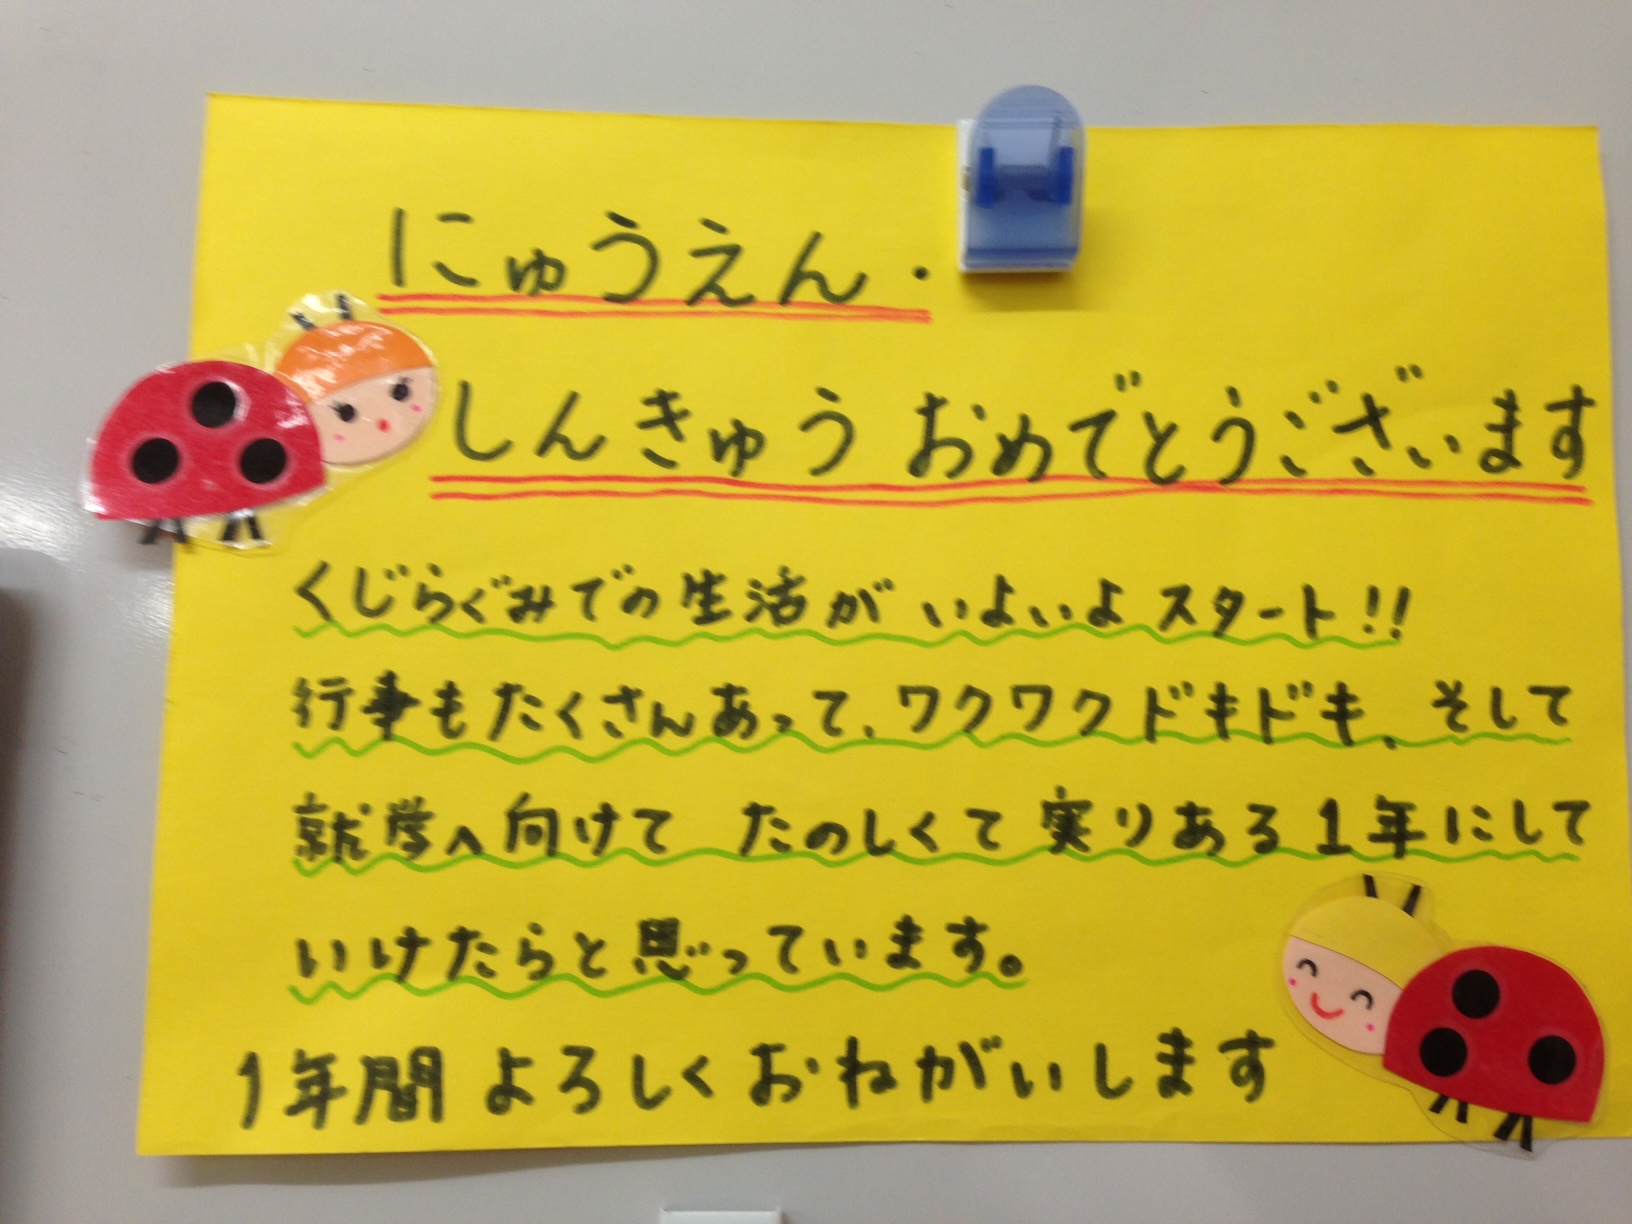 にゅうえん・
しんきゅう おめでとうございます
くじらぐみでの生活が いよいよ スタート!!
行事もたくさんあって、ワクワクドキドキ、そして
就学へ向けて たのしくて 実りある1年にして
いけたらと思っています。
1年間 よろしく おねがいします